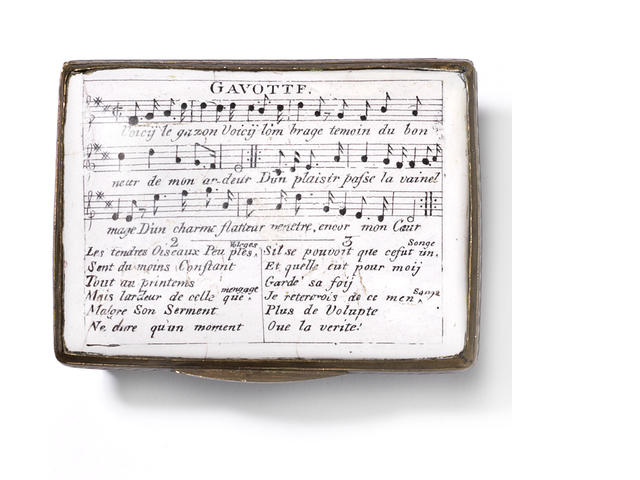 GAVOTTE.
Voicij le gazon Voicij lom brage temoin du bon
neur de mon ar-deur D'un plaisir passe la vaine
mage D'un charme flatteur penetre, encor mon Cœur
2
Volages
Les tendres Oiseaux Peu ples,
Sont du moins Constant
Tout au printems
mengage
Mais larDeur de celle que
Malgre Son Serment
Ne dure qu'un moment
3
Songe
Sil se pouvoit que cefut un,
Et quelle eut pour moij
Garde sa foij
Je retervois de ce men,
Plus de Volupte
Que la verite!